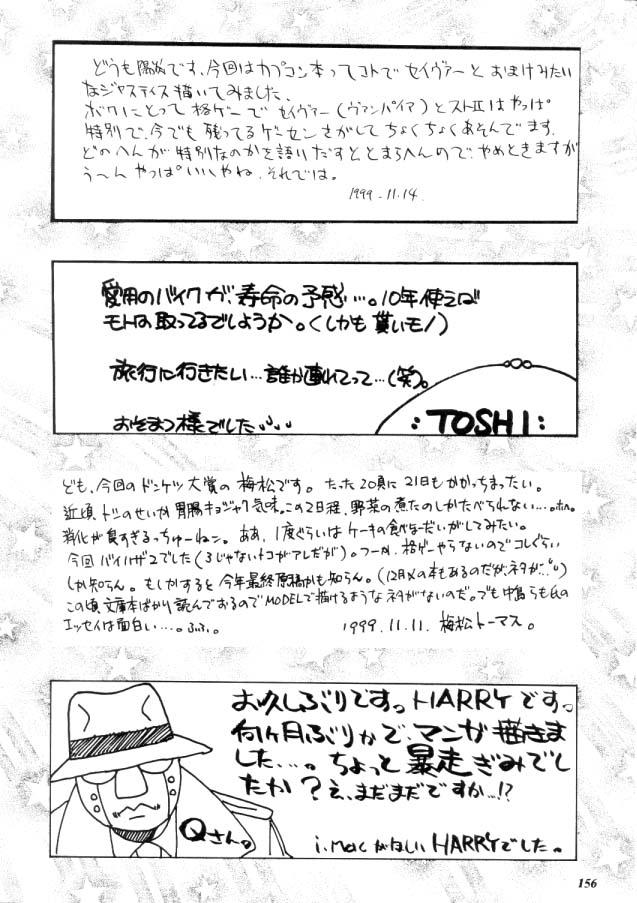 どうも陽気です、今回はカプコン本ってコトでセイヴァーとおまけみたい
なジャスティス描いてみました、
ボクにとって格ゲーでセイヴァー(ヴァンパイア)とストⅡはやっぱ
特別で、今でも残ってるゲーセンさがしてちょくちょくあそんでます、
どのへんが特別なのかを語りだすととまらへんので、やめときますが
う〜んやっぱいいやね、それでは。
1999.11.14.
愛用のバイクが、寿命の予感…。10年使えば
モトは取ってるでしょうか。(しかも貰いモノ)
旅行に行きたい…誰か連れてって…(笑)。
おそまつ様でした
:TOSHI:
ども、今回のドンケツ大賞の梅松です。たった20頁に21日もかかっちまったい。
近頃、トシのせいか胃腸キョジャク気味。この2日程、野菜の煮たのしかたべられない…。
消化が良すぎるっちゅーねン。ああ、1度ぐらいはケーキの食べなーだいがしてみたい。
今回バイハザ2でした(3じゃないトコがアレだが)。つーか、格ゲーやらないのでコレぐらい
しか知らん。もしかすると今年最終原稿かも知らん。(12月〆の本もあるのだが、ネタが…)
この頃、文庫本ばかり読んでおるのでMODELで描けるようなネタがないのだ。でも中島らも氏の
エッセイは面白い…。ふふ。
1999.11.11. 梅松トーマス。
お久しぶりですっHARRYですっ
何ヶ月ぶりかで、マンガ描きま
した…。ちょっと暴走ぎみでし
たか？え、まだまだですか…!?
Qさん。
i.Macがほしい HARRYでした。
156